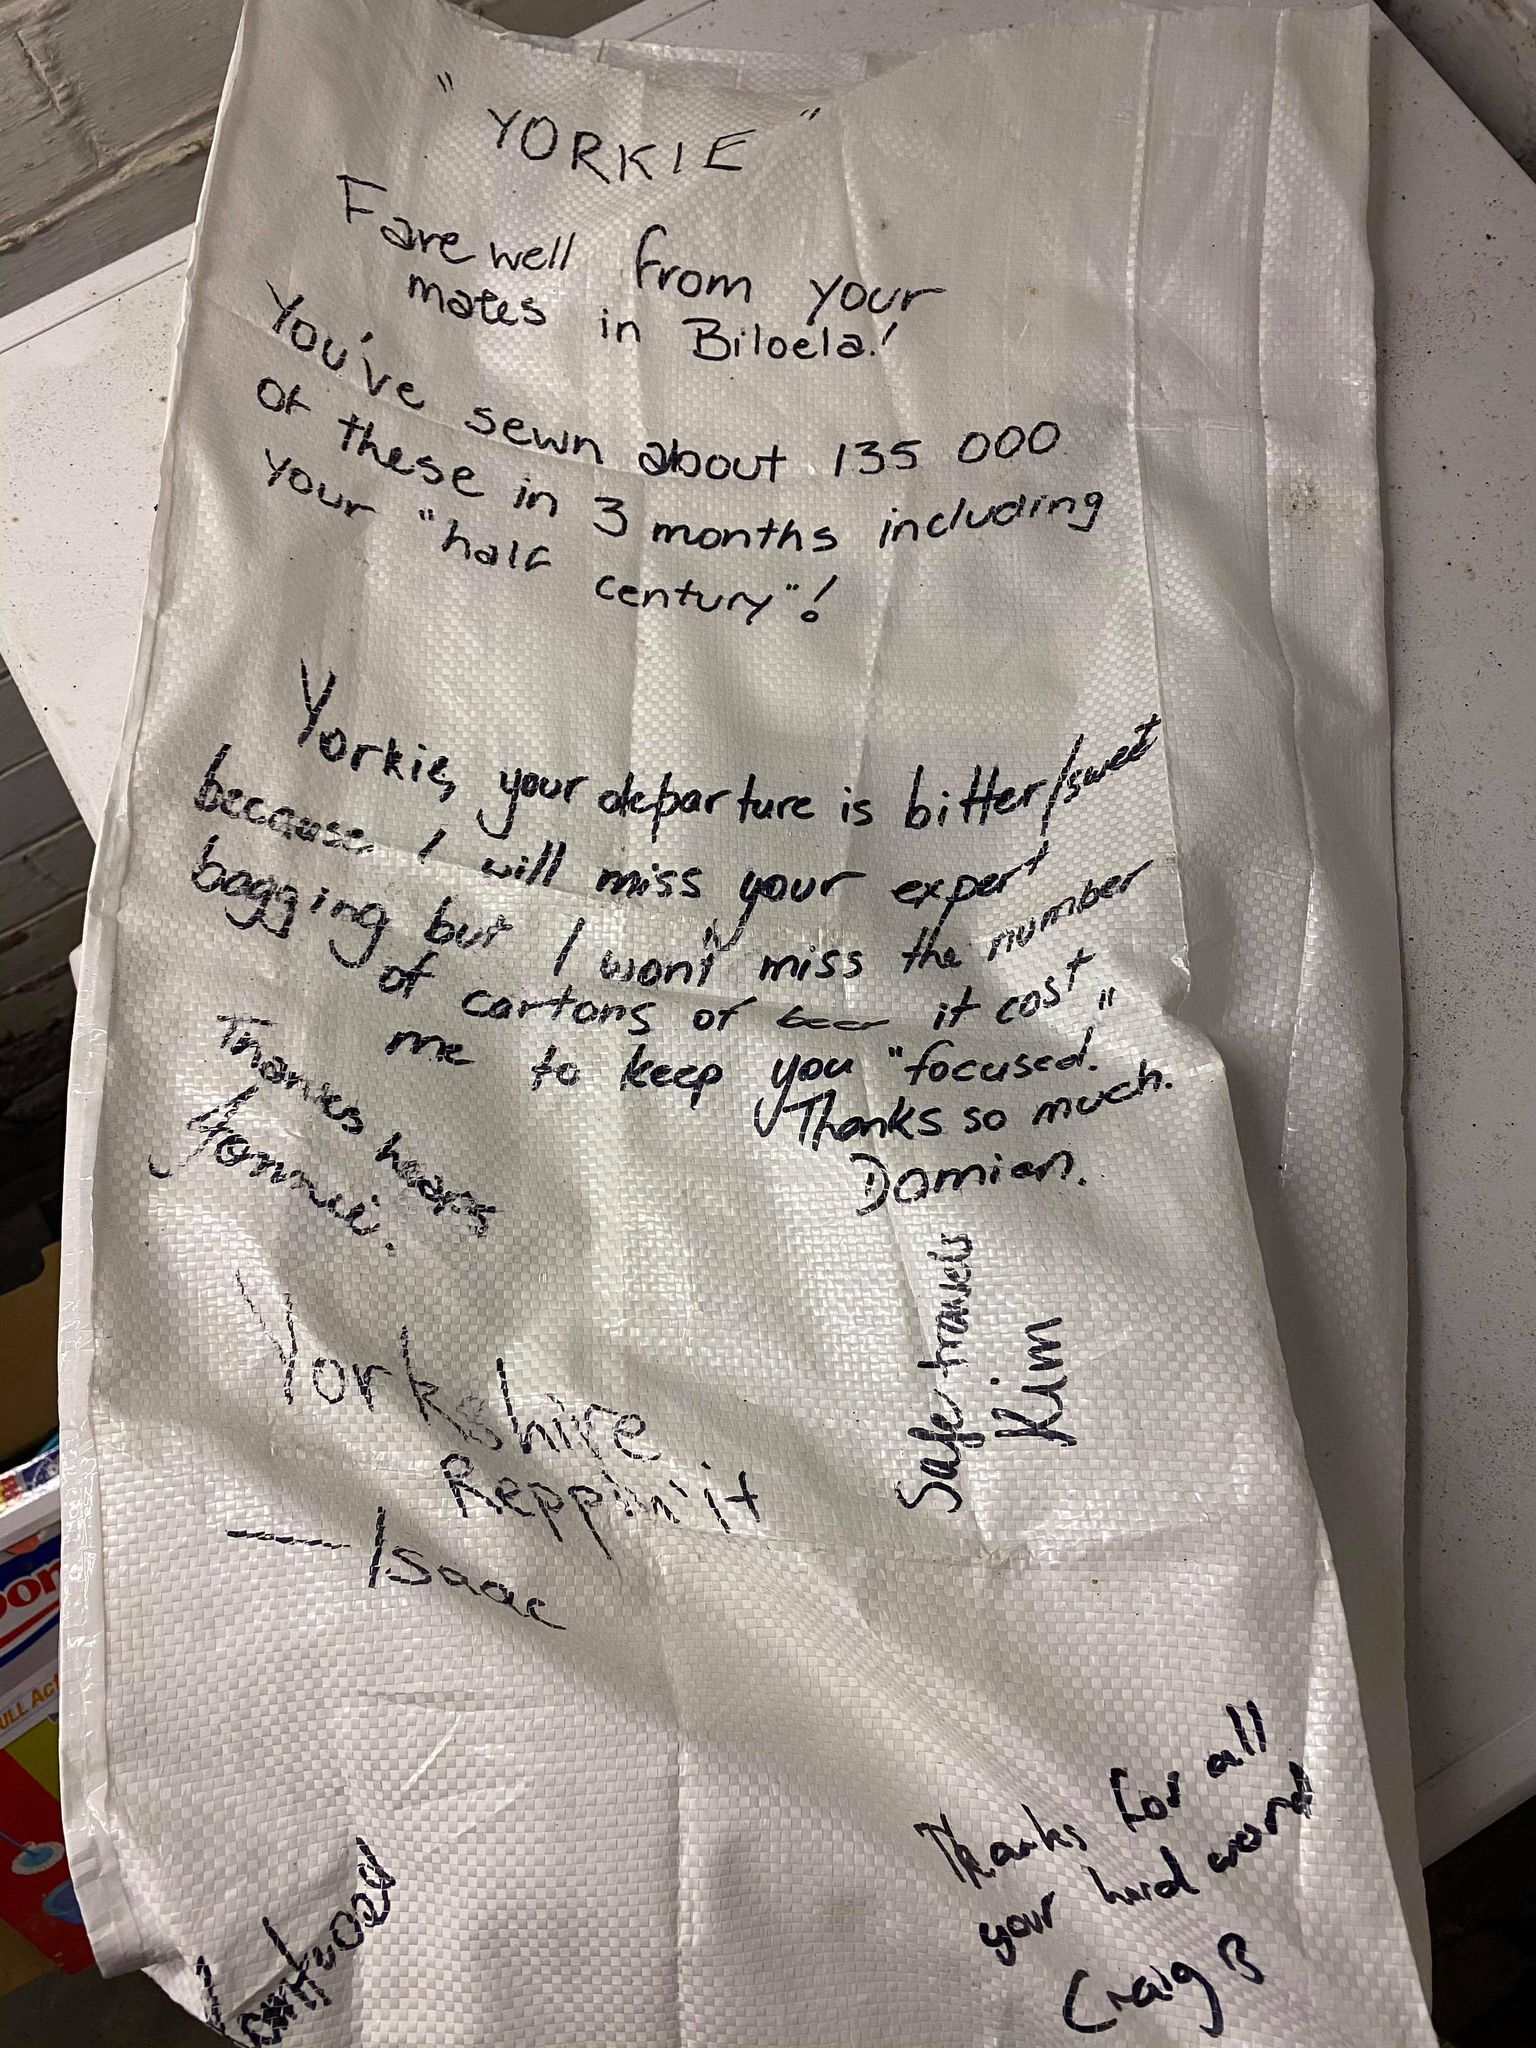 "YORKIE"
Farewell from your
mates in Biloela!
You've sewn about 135 000
of these in 3 months including
your "half
century"!
Yorkie, your departure is bitter/sweet
because I will miss your expert
bagging but I won't miss the number
of cartons of beer it cost
me to keep you "focused."
Thanks so much.
Damien.
Thanks
Yorkshire
Reppin' it
— Isaac
Safe travels
Kim
Thanks for all
your hard work
Craig B
DON
ULL Act